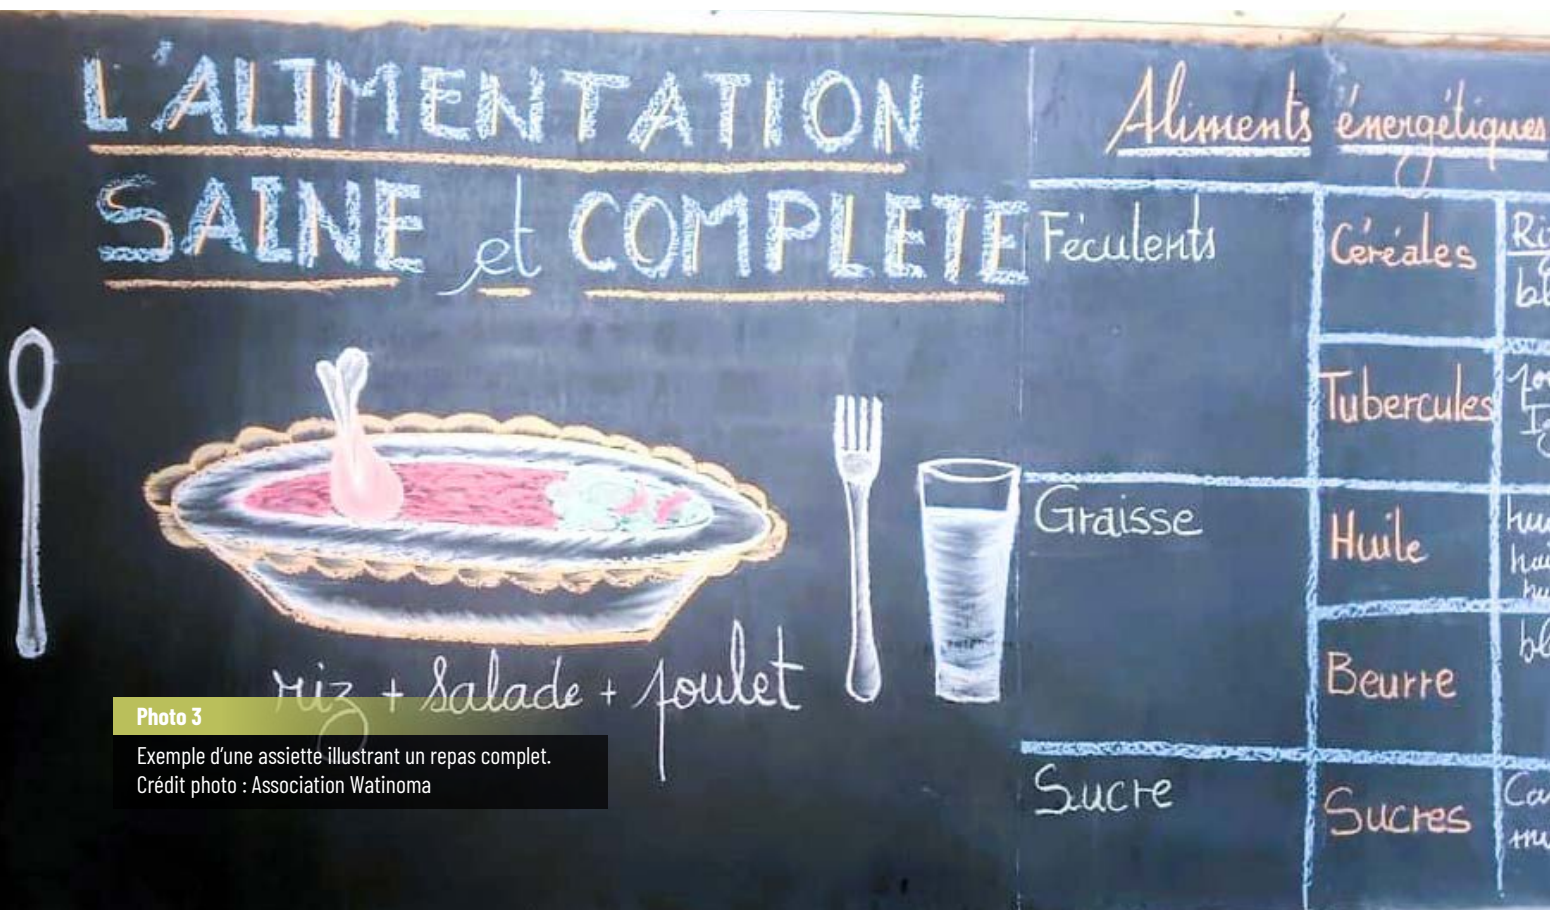 L'ALIMENTATION
SAINE et COMPLETE
riz + salade + poulet
Photo 3
Exemple d'une assiette illustrant un repas complet.
Crédit photo : Association Watinoma
Aliments énergétiques
Féculents
Céréales
Tubercules
Graisse
Huile
Beurre
Sucre
Sucres